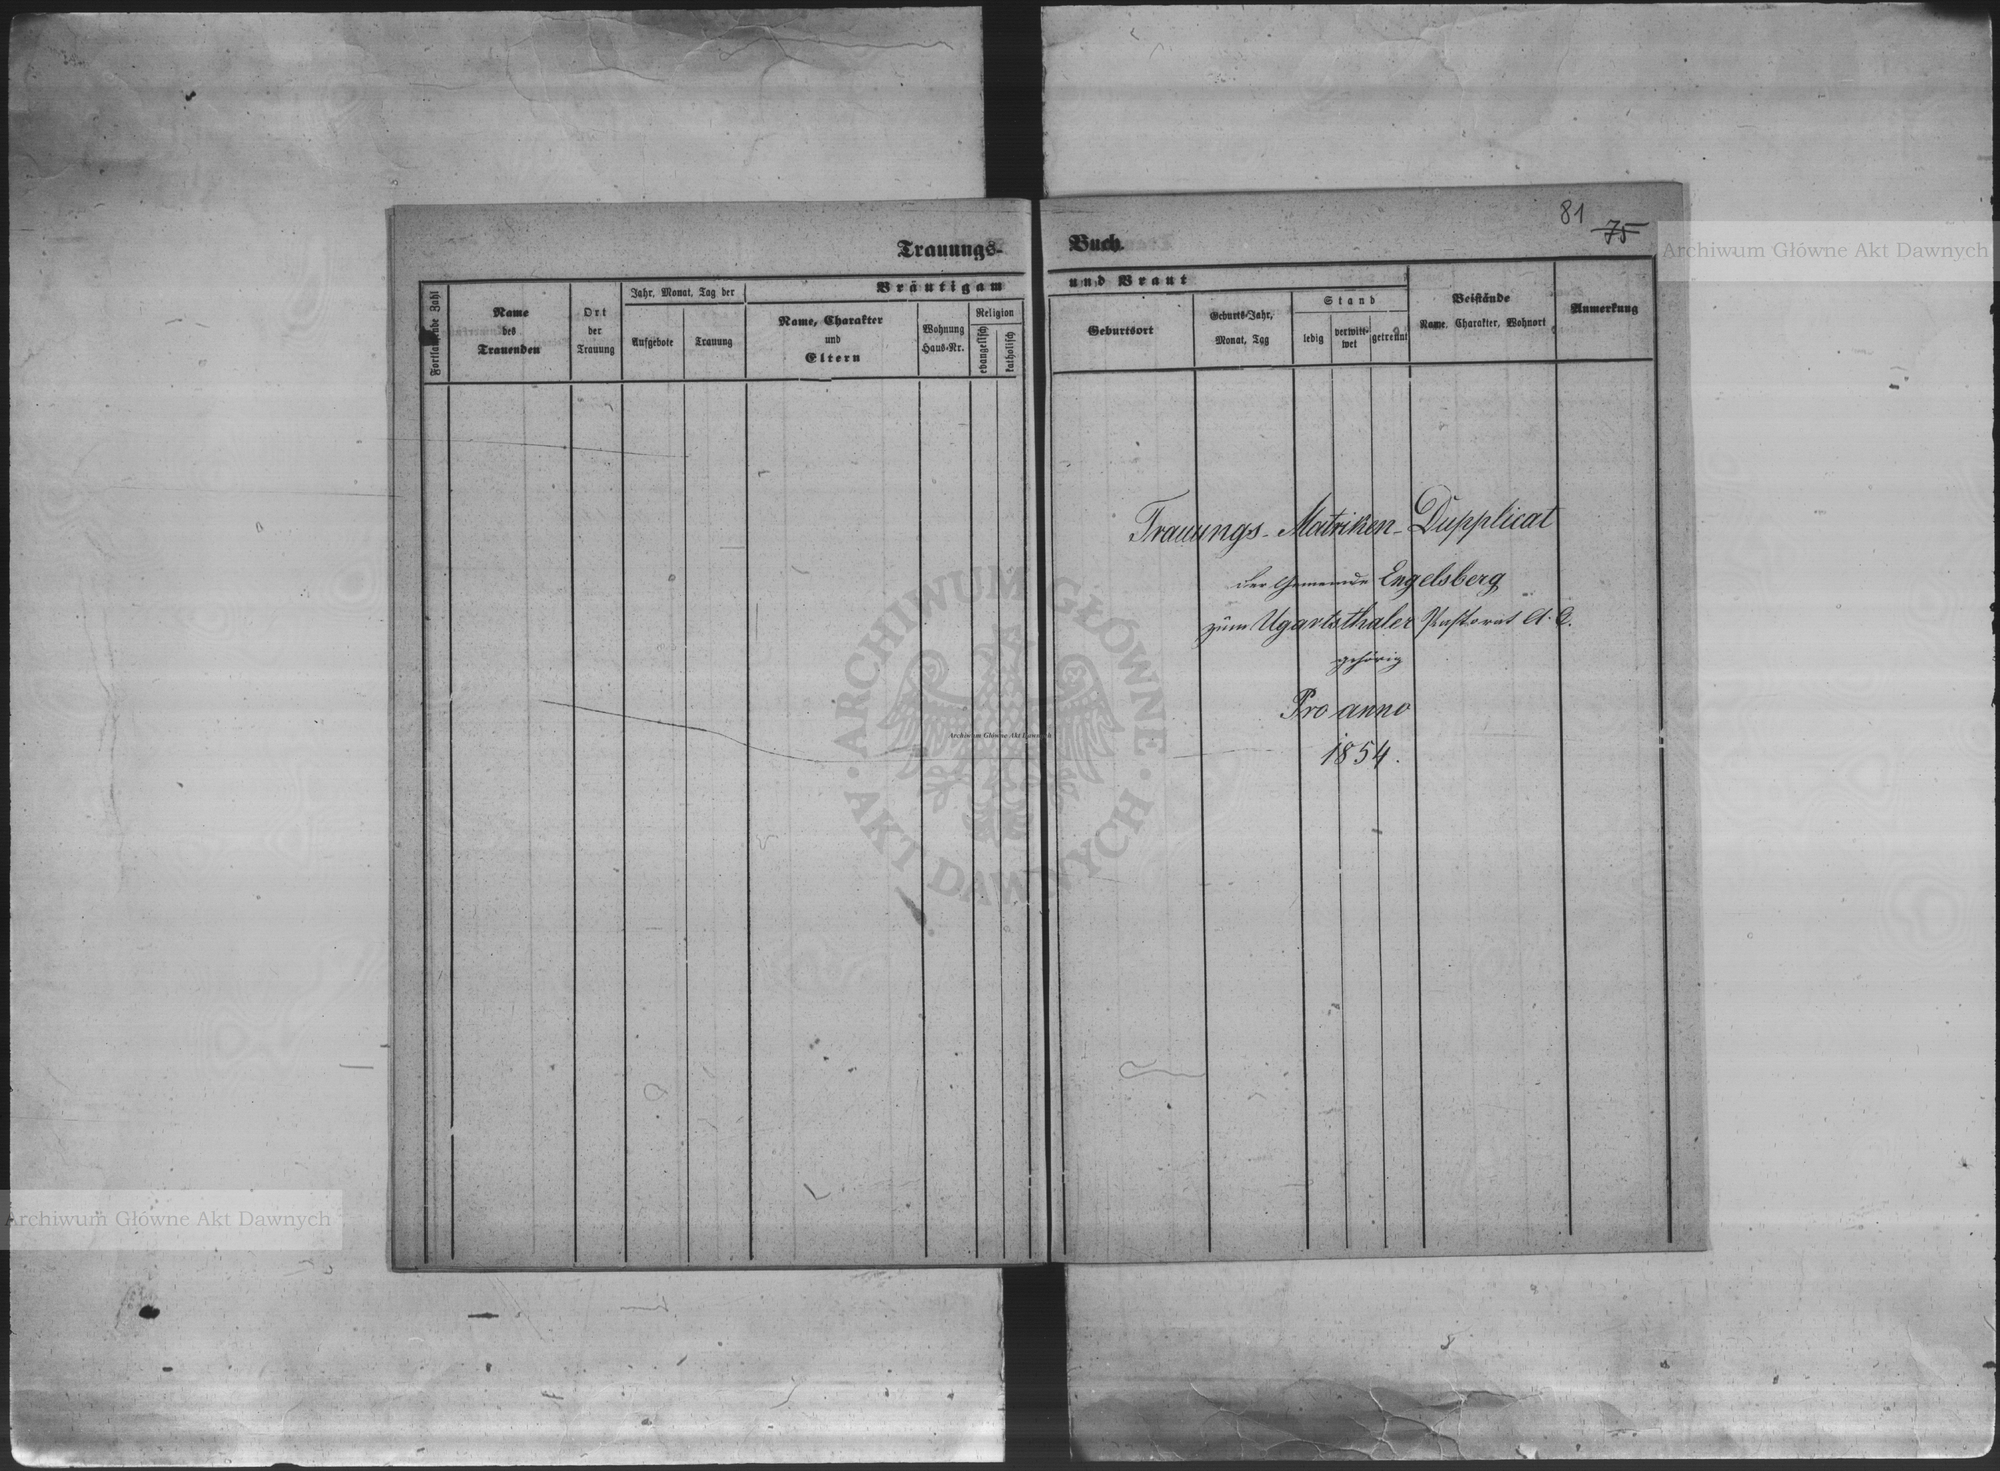 81
75
Trauungs-
Buch.
Fortlaufende Zahl
Name
des
Trauenden
Ort
der
Trauung
Jahr, Monat, Tag der
Aufgebote
Trauung
Bräutigam
Name, Charakter
und
Eltern
Wohnung
Haus-Nr.
Religion
evangelisch
katholisch
und Braut
Geburtsort
Geburts-Jahr,
Monat, Tag
Stand
ledig
verwitt-
wet
getrennt
Beistände
Name, Charakter, Wohnort
Anmerkung
Trauungs-Matriken-Dupplicat
der Gemeinde Engelsberg
zum Ugartsthaler Pastorat A. C.
gehörig
Pro anno
1854.
Archiwum Główne Akt Dawnych
ARCHIWUM GŁÓWNE
AKT DAWNYCH
Archiwum Główne Akt Dawnych
Archiwum Główne Akt Dawnych